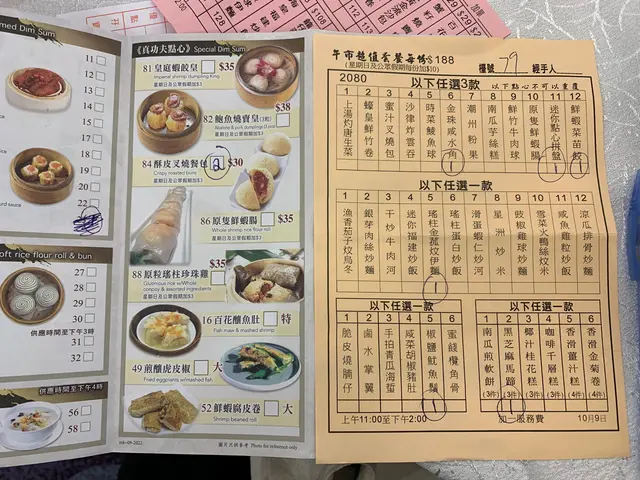 med Dim Sum
11
12
13
14
15
16
17
18
19
20
22
oft rice flour roll & bun
27
28
29
30
供應時間至下午3時
31
32
供應時間至下午4時
56
58
《真功夫點心》 Special Dim Sum
81 皇庭蝦餃皇 $35
Imperial shrimp dumpling King
星期日及公眾假期加$3
$38
82 鮑魚燒賣皇(3粒)
星期日及公眾假期加$3
84 酥皮叉燒餐包 2 $30
Crispy roasted buns
星期日及公眾假期加$3
86 原隻鮮蝦腸 $35
Whole shrimp rice flour roll
88 原粒瑤柱珍珠雞 $35
Glutinous rice w/Whole
conpoy & assorted ingredients
星期日及公眾假期加$3
16 百花釀魚肚 特
Fish maw & mashed shrimp
49 煎釀虎皮椒 大
Fried eggplants w/mashed fish
52 鮮蝦腐皮卷 大
Shrimp beaned roll
圖片只供參考 Photo for reference only
午市超值套餐每位$188
(星期日及公眾假期每位加$10)
檯號 79 經手人
2080
以下任選3款
以下點心不可以重覆
1 2 3 4 5 6 7 8 9 10 11 12
上湯灼唐生菜
蠔皇鮮竹卷
蜜汁叉燒包
沙律炸雲吞
時菜鯪魚球
金珠咸水角 1
潮州粉果
南瓜芋絲糕
鮮竹牛肉球
原隻鮮蝦腸
迷你點心拼盤 1
鮮蝦菜苗餃 1
以下任選一款
1 2 3 4 5 6 7 8 9 10 11 12
漁香茄子炆烏冬
銀芽肉絲炒麵
干炒牛肉河
迷你福建炒飯
瑤柱金菰炆伊麵 1
瑤柱蛋白炒飯
滑蛋蝦仁炒河
星洲炒米
豉椒雞球炒麵
雪菜火鴨絲炆米
咸魚雞粒炒飯
涼瓜排骨炒麵
以下任選一款
1 2 3 4 5 6
脆皮燒腩仔
鹵水掌翼
手拍青瓜海蜇
咸菜胡椒豬肚
椒鹽魷魚鬚 1
蜜餞欖角骨
以下任選一款
1 2 3 4 5 6
南瓜煎軟餅(3件)
黑芝麻馬蹄(3件)
椰汁桂花糕(3件)
咖啡千層糕(3件)
香滑薑汁糕(4件)
香滑金菊卷(4件)
上午11:00至下午2:00
加一服務費
10月9日